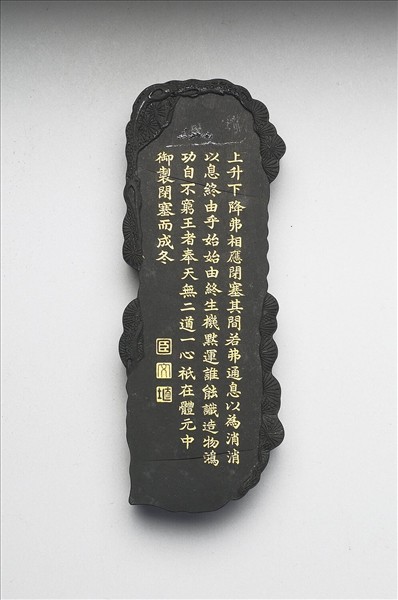 上升下降弗相應閉塞其間若弗通息以為消消
以息終由乎始始由終生機默運誰能識造物鴻
功自不窮王者奉天無二道一心祇在體元中
御製閉塞而成冬
臣文埴